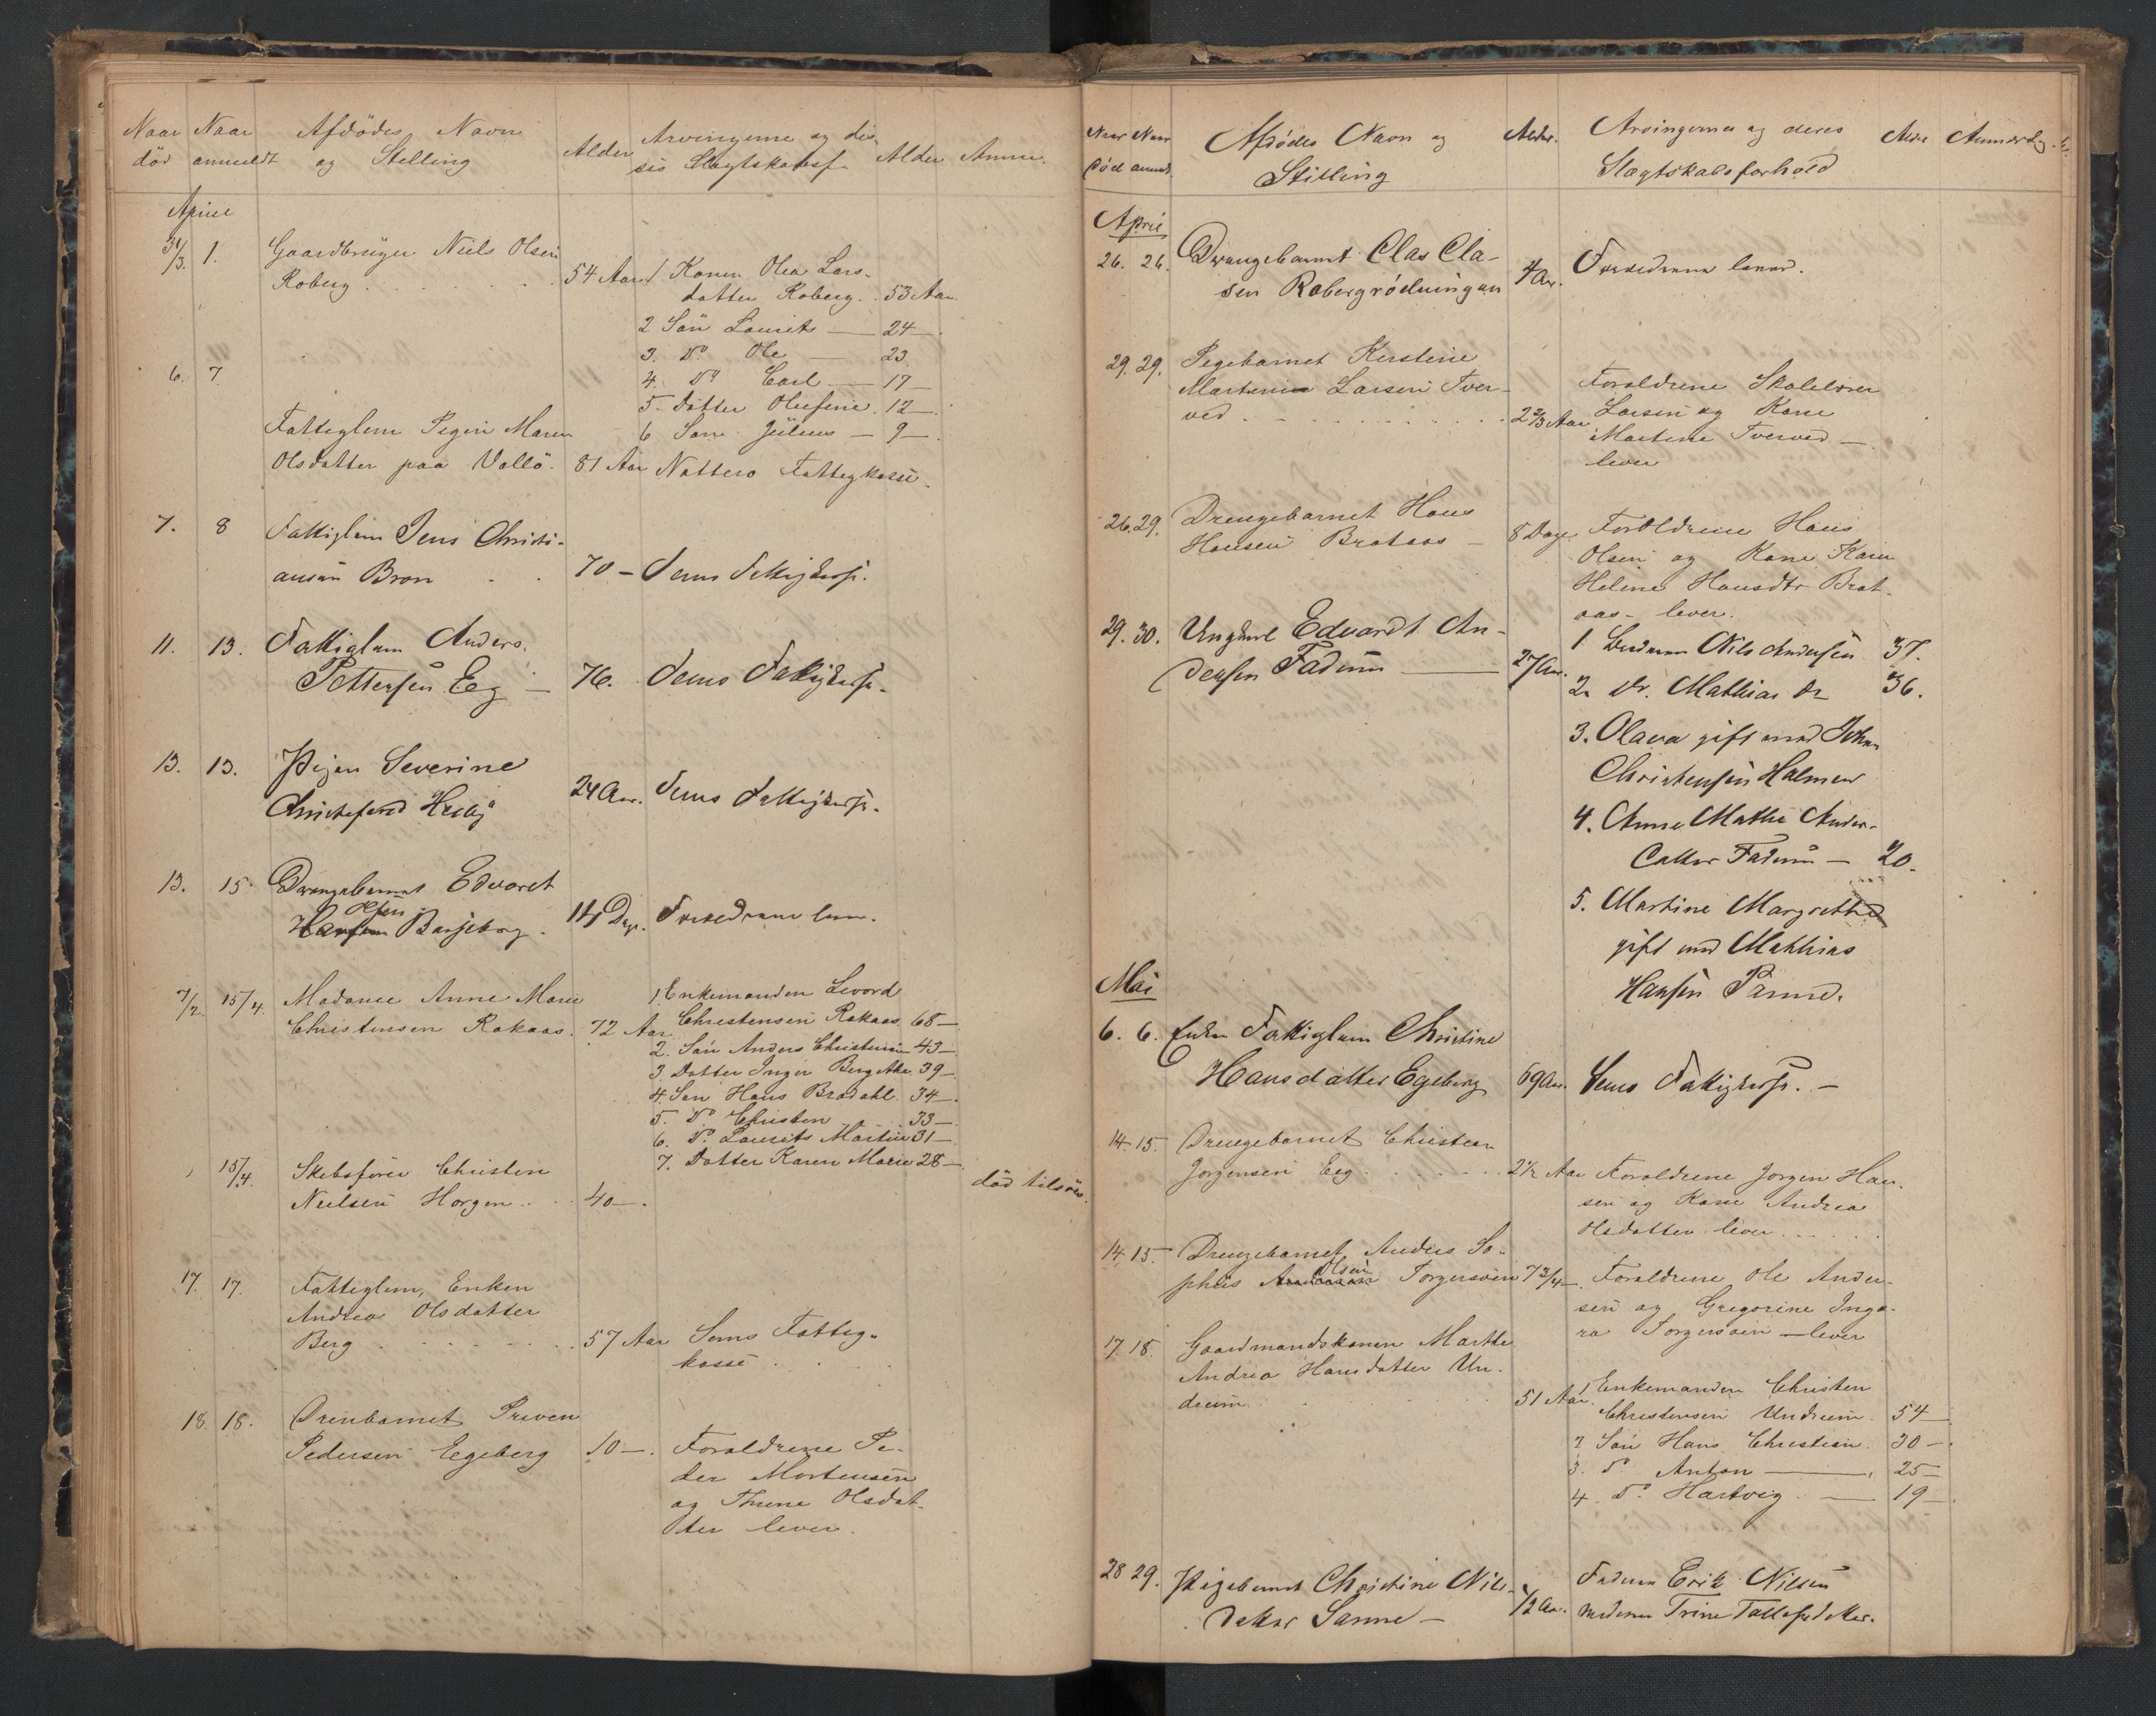 Naar Naar Afdödes Navn Alder Arvingerne og dis- Alder Anm.
död anmeldt og Stilling ses Slægtskabsf.
April
31/3. 1. Gaardbruger Niels Olsen
Roberg . . . 54 Aar 1 Konen Olea Lars-
datter Roberg. 53 Aar
2 Sön Laurits — 24 —
3. Do Ole — 23.
4. Do Carl — 17 —
5. Datter Olefine. 12 —
6 Sön Julius — 9 —
6. 7.
Fattiglem Pigen Maren
Olsdatter paa Vallö. 81 Aar Nøtterø Fattigkasse.
7. 8 Fattiglem Jens Christi-
ansen Bron . . 70 — Sems Fattigkasse.
11. 13. Fattiglem Anders
Pettersen Eeg — 76. Sems Fattigkasse.
13. 13. Pigen Severine
24 Aar. Sems Fattigkasse.
13. 15. Drengebarnet Edvard
Olsen
Hansen 14 Dage. Forældrene lever.
7/2. 15/4. Madame Anne Marie
Christensen Rakaas. 72 Aar
1. Enkemanden Sivord
Christensen Rakaas 68 —
2. Sön Anders Christensen 43 —
3. Datter Inger 39 —
4. Sön Hans Brodahl. 34 —
5. Do Christen 33 —
6. Do Laurits Martin 31 —
7. Datter Karen Marie 28 —
15/4. Skibsfører Christen
Nielsen Horgen . . 40 —. död tilsöes.
17. 17. Fattiglem, Enken
Andrea Olsdatter
Berg . . . 57 Aar Sems Fattig-
kasse . . .
18. 18. Drenbarnet
Pedersen Egeberg 10 —. Foraldrene Pe-
der Mortensen
og Thrine Olsdat-
ter lever.
Naar Naar Afdödes Navn og Alder. Arvingernes og deres Alder Anmærkg.
död anmdt. Stilling Slægtskabsforhold
April
26. 26. Drengebarnet Clas Cla-
sen Robergrödningen 4 Aar. Forældrene lever.
29. 29. Pigebarnet Kirstine
Martine Larsen Tver-
ved . . . 2 2/3 Aar
Foraldrene Skolelærer
Larsen og Kone
Martine Tverved —
lever
26. 29. Drengebarnet Hans
Hansen Brataas — 8 Dage. Foraldrene Hans
Olsen og Kone Karen
Heline Hansdtr Brat-
aas — lever.
29. 30. Ungkarl Edvardt An-
dersen Fadum — 27 Aar.
1 Broderen Nils Andersen 37.
2. Do. Mathias Do 36.
3. Olava gift med Johan
Christensen Holmen
4. Anne Mathe Anders-
datter Fadum — 20.
5. Martine Margrethe
gift med Mathias
Hansen
Mai
6. 6. Enken Fattiglem Christine
Hansdatter Egeberg 69 Aar. Sems Fattigkasse. —
14. 15. Drengebarnet Christian
Jorgensen Eeg . . . 2 1/2 Aar Foraldrene Jorgen Han-
sen og Kone Andrea
Olsdatter lever . . .
14. 15. Drengebarnet Anders So-
Olsen
phus Andersen Torgersöen 7 3/4 — Foraldrene Ole Ander-
sen og Gregorine Inga-
ra Torgersöen — lever
17. 18. Gaardmandskonen Marthe
Andrea Hansdatter Un-
drum . . . 51 Aar.
1 Enkemanden Christen
Christensen Undrum. 54 —
2 Sön Hans Christian. 30 —
3. Do Anton — 25 —
4. Do Hartvig. — 19 —
28 29. Pigebarnet Christine Nils-
datter Sanne — 1/2 Aar.
Faderen Erik Nilsen
moderen Trine Tollefsdatter.